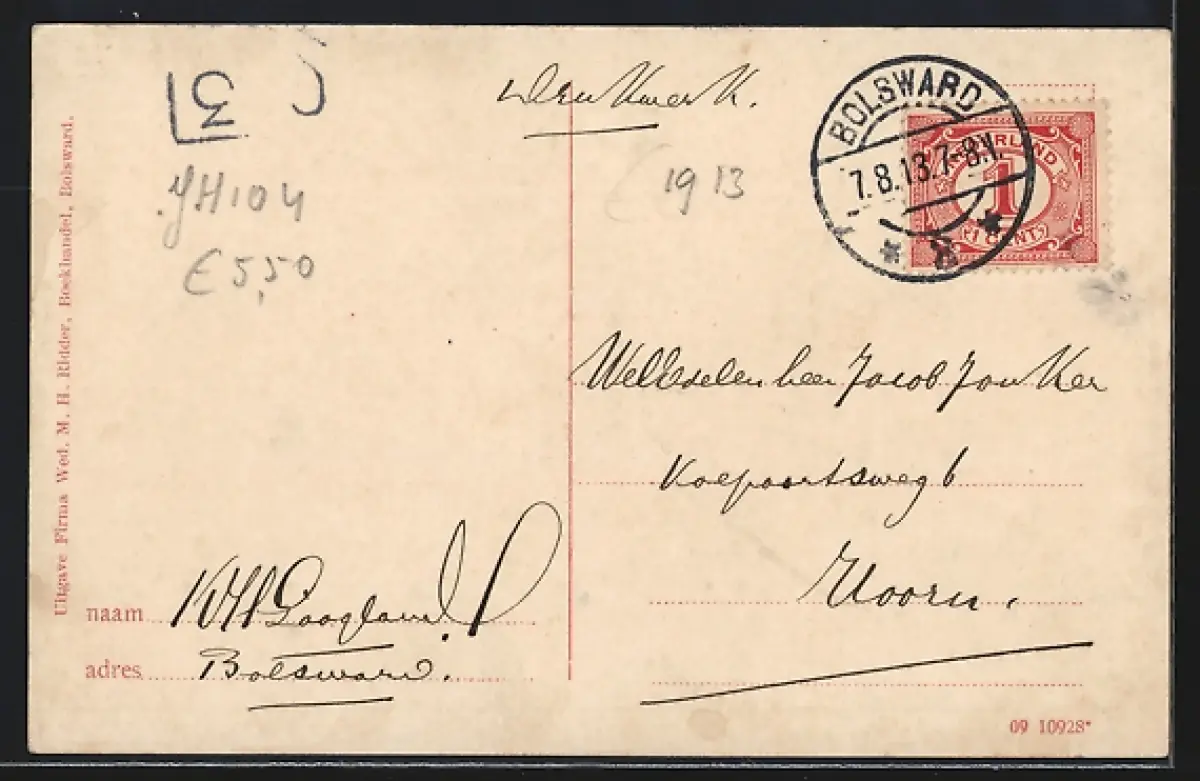 3
JH104
€5,50
Drukwerk.
1913
BOLSWARD
7.8.13.7-8.V.
NEDERLAND
1
1 CENT
Uitgave Firma Wed. M. H. Ridder, Boekhandel, Bolsward.
WelEdelen heer Jacob Jon Ker
Koepoortsweg 6
Hoorn.
naam
Hoogland
adres Bolsward.
09 10928*